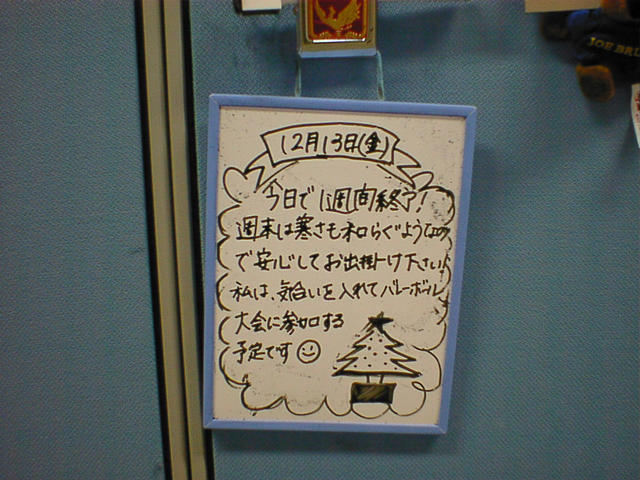 12月13日(金)
今日で1週間終了!
週末は寒さも和らぐようなの
で安心してお出掛け下さい!
私は、気合いを入れてバレーボール
大会に参加する
予定です
JOE BRU